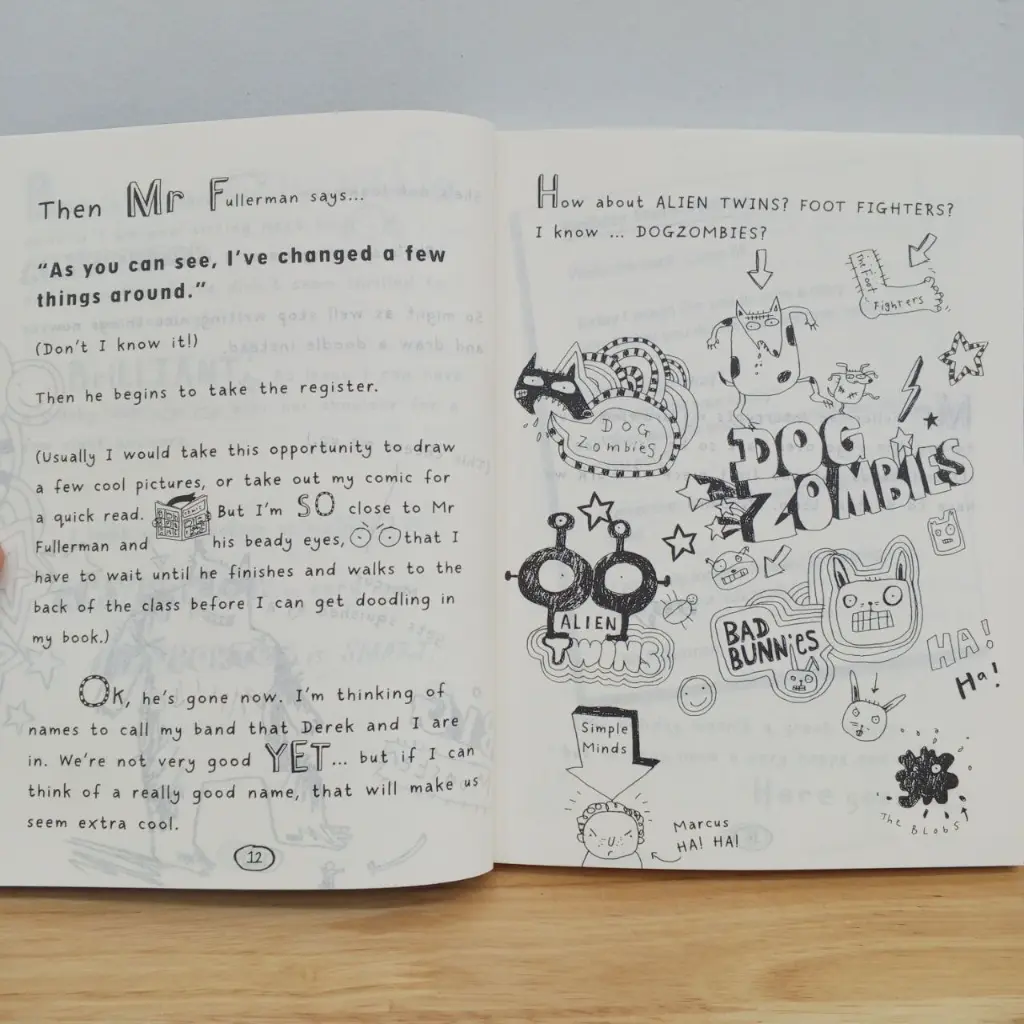 Then Mr Fullerman says...
“As you can see, I’ve changed a few
things around.”
(Don’t I know it!)
Then he begins to take the register.
(Usually I would take this opportunity to draw
a few cool pictures, or take out my comic for
a quick read. But I’m SO close to Mr
Fullerman and his beady eyes, that I
have to wait until he finishes and walks to the
back of the class before I can get doodling in
my book.)
OK, he’s gone now. I’m thinking of
names to call my band that Derek and I are
in. We’re not very good YET... but if I can
think of a really good name, that will make us
seem extra cool.
12
How about ALIEN TWINS? FOOT FIGHTERS?
I know ... DOGZOMBIES?
The Foot
Fighters
DOG
Zombies
DOG
ZOMBIES
ALIEN
TWINS
BAD
BUNNiES
HA!
Ha!
Simple
Minds
Marcus
HA! HA!
The BLObS